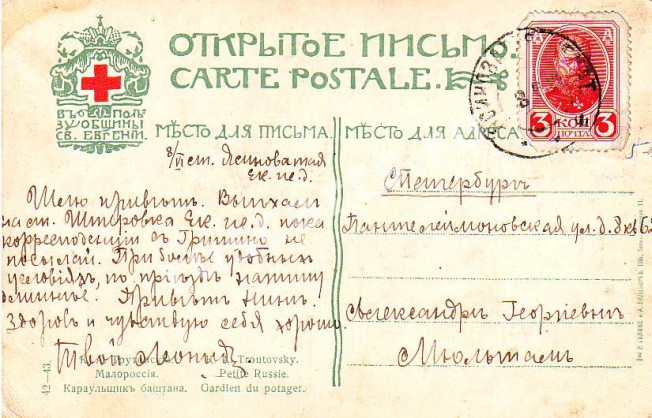 ОТКРЫТОЕ ПИСЬМО
CARTE POSTALE.
ВЪ ПОЛЬ
ЗУ ОБЩИНЫ
СВ. ЕВГЕНІИ.
МѢСТО ДЛЯ ПИСЬМА.
МѢСТО ДЛЯ АДРЕСА
3 КОП 3
ПОЧТА
ст. Ясиноватая
Ек. ж.д.
Шлю привѣтъ. Выѣхал
на ст. Штеровка Ек. ж.д. пока
корреспонденціи въ Гришино не
посылай. При болѣе удобныхъ
условіяхъ, по пріѣздѣ напишу
длиннѣе. Привѣтъ
Здоровъ и чувствую себя хорошо.
Твой Леонидъ
С Петербургъ
Пантелеймоновская ул. д. 8 кв 62
Александрѣ Георгіевнѣ
Мюльтамъ
42—43.
Трутовскій.
Малороссія.
Караульщикъ баштана.
Troutovsky.
Petite Russie.
Gardien du potager.